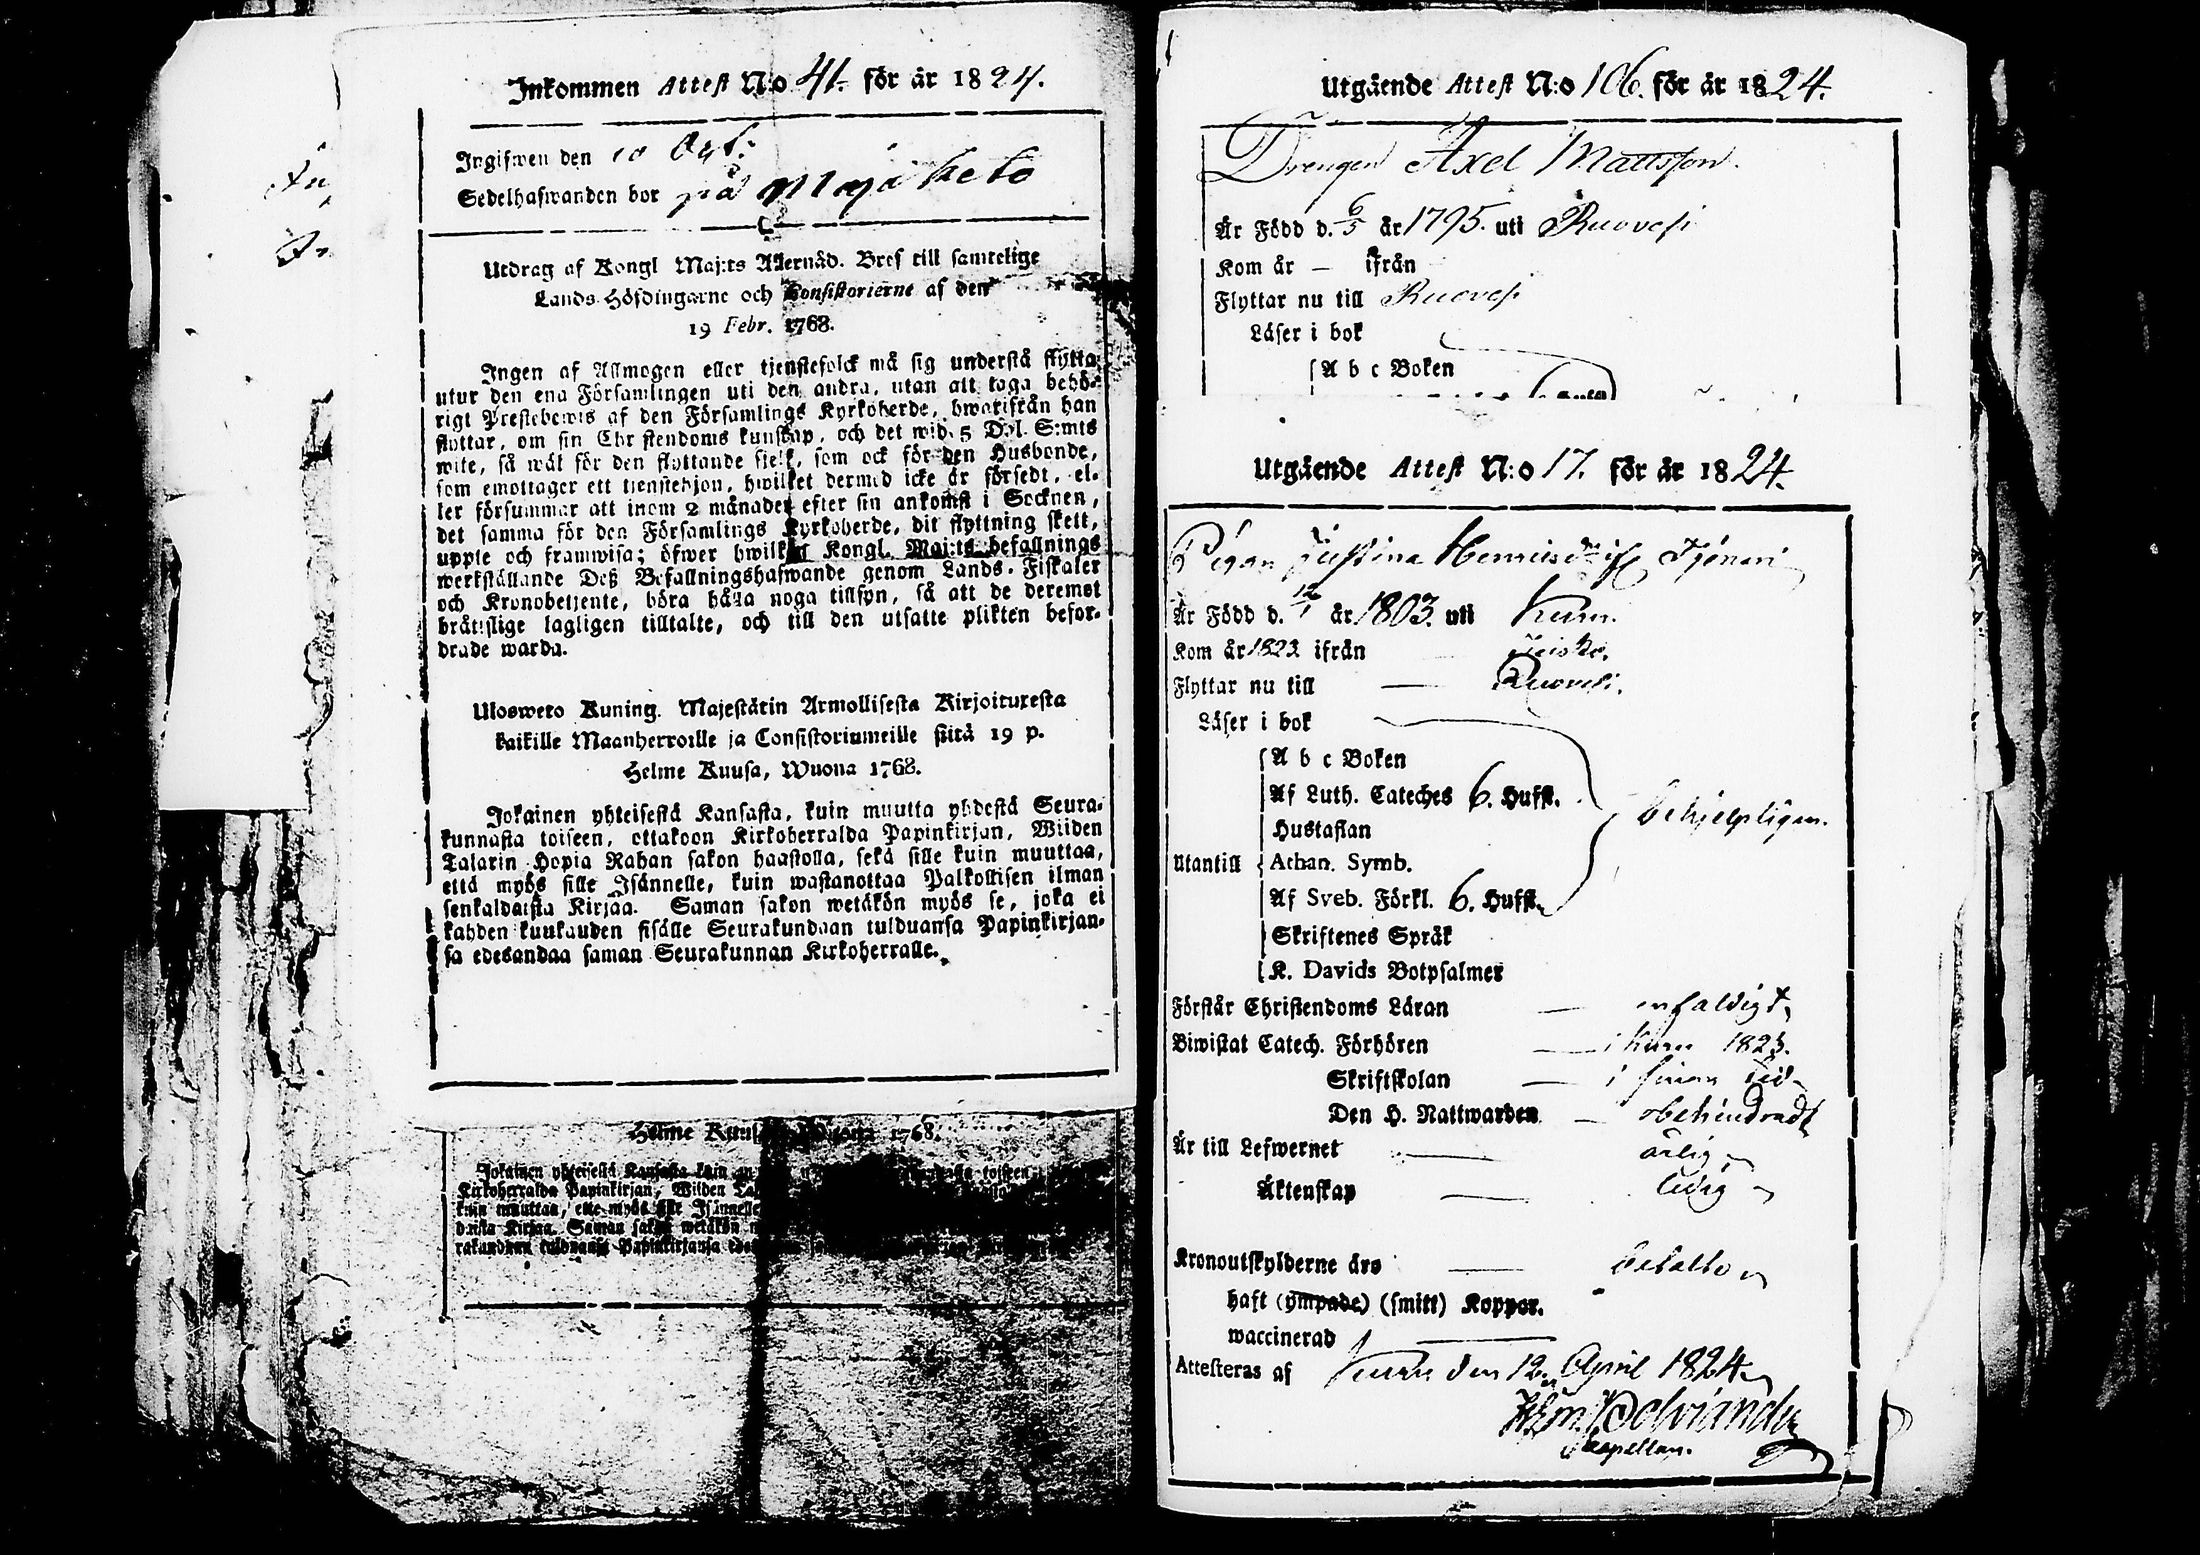 Inkommen Attest N:o 41. för år 1824.
Ingifwen den 10 Oct:
Sedelhafwanden bor på Majaketo
Utdrag af Kongl Maj:ts Allernåd. Bref till samtelige
Lands Höfdingarne och Consistorierne af den
19 Febr. 1768.
Ingen af Allmogen eller tjenstefolck må sig understå flytta
utur den ena Församlingen uti den andra, utan att taga behö-
rigt Prestebewis af den Församlings Kyrkoherde, hwarifrån han
flyttar, om sin Christendoms kunskap, och det wid 5 Dal. S:mts
wite, så wäl för den flyttande sielf, som ock för den Husbonde,
som emottager ett tienstehjon, hwilket dermed icke är försedt, el-
ler försummar att inom 2 månader efter sin ankomst i Socknen,
det samma för den Församlings Kyrkoherde, dit flyttning skett,
uppte och framwisa; öfwer hwilken Kongl. Maj:ts befallnings
werkställande Deß Befallningshafwande genom Lands-Fiskaler
och Kronobetjente, böra hålla noga tillsyn, så att de deremot
brätslige lagligen tilltalte, och till den utsatte plikten befor-
drade warda.
Ulosweto Kuning. Majestätin Armollisesta Kirjoituxesta
kaikille Maanherroille ja Consistoriumeille siitä 19 p.
Helme Kuusa, Wuona 1768.
Jokainen yhteisestä Kansasta, kuin muutta yhdestä Seura-
kunnasta toiseen, ottakoon Kirkoherralda Papinkirjan, Wiiden
Talarin Hopia Rahan sakon haastolla, sekä sille kuin muuttaa,
että myös sille Isännelle, kuin wastanottaa Palkollisen ilman
senkaldaista Kirjaa. Saman sakon wetäkön myös se, joka ei
kahden kuukauden sisälle Seurakundaan tulduansa Papinkirjan-
sa edesandaa saman Seurakunnan Kirkoherralle.
Helme Kuusa Wuona 1768.
Jokainen yhteisestä Kansasta kuin toiseen
Kirkoherralda Papinkirjan, Wiiden
kuin muuttaa, että myös sille Isännelle
daista Kirjaa. Saman sakon wetäkön
rakundaan tulduansa Papinkirjansa
Utgående Attest N:o 106. för år 1824.
Drengen Axel Mattsson.
Är Född d. 6/5 år 1795. uti Ruovesi
Kom år — ifrån
Flyttar nu till Ruovesi
Läser i bok
A b c Boken
Utgående Attest N:o 17. för år 1824.
Pigan Justina Henricsdr
Är Född d. 12/1 år 1803. uti Kuru.
Kom år 1823 ifrån Teisko.
Flyttar nu till — Ruovesi.
Läser i bok
A b c Boken
Af Luth. Cateches 6. Hufst.
behjelpligen.
Hustaflan
Utantill Athan. Symb.
Af Sveb. Förkl. 6. Hufst.
Skriftenes Språk
K. Davids Botpsalmer
Förstår Christendoms Läran — enfaldigt
Biwistat Catech. Förhören — i Kuru 1823.
Skriftskolan — i sinom tid
Den H. Nattwarden — obehindradt
Är till Lefwernet — ärlig
Äktenskap — ledig
Kronoutskylderne äro — betalte
haft (ympade) (smitt) Koppor.
waccinerad —
Attesteras af Kuru den 12 April 1824
Capellan.